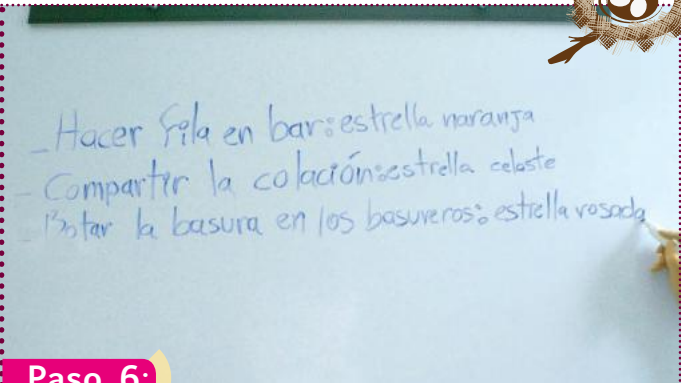 - Hacer fila en bar: estrella naranja
- Compartir la colación: estrella celeste
- Botar la basura en los basureros: estrella rosada
Paso 6: